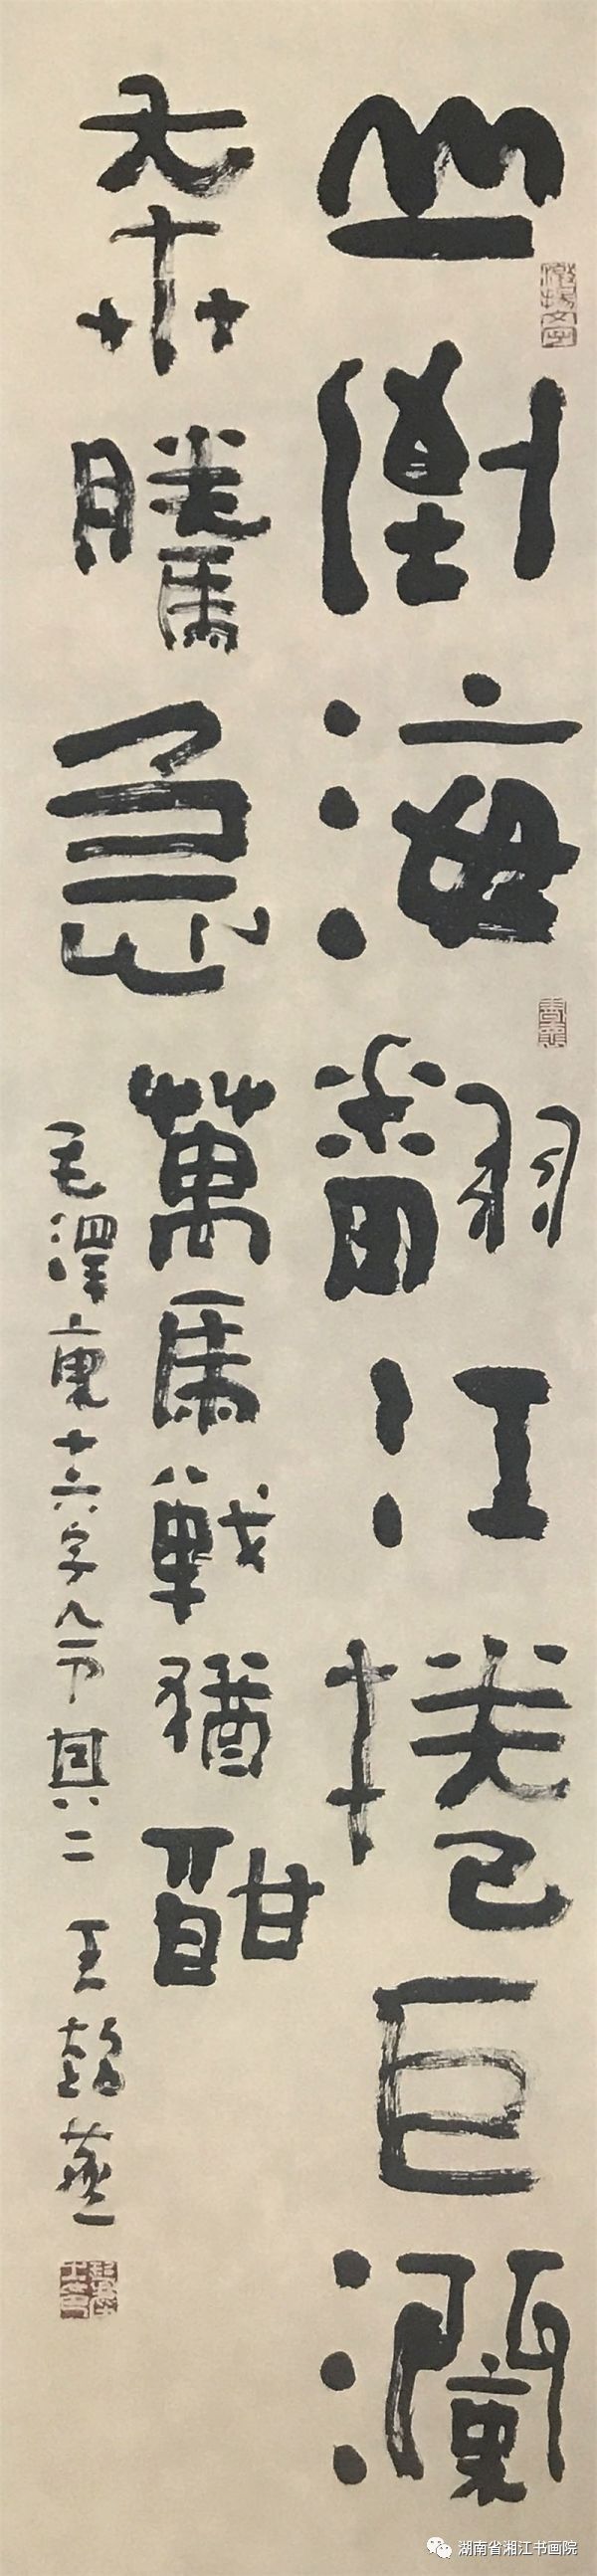 山倒海翻江捲巨瀾
奔騰急萬馬戰猶酣
毛澤東十六字令其二 王
湖南省湘江书画院